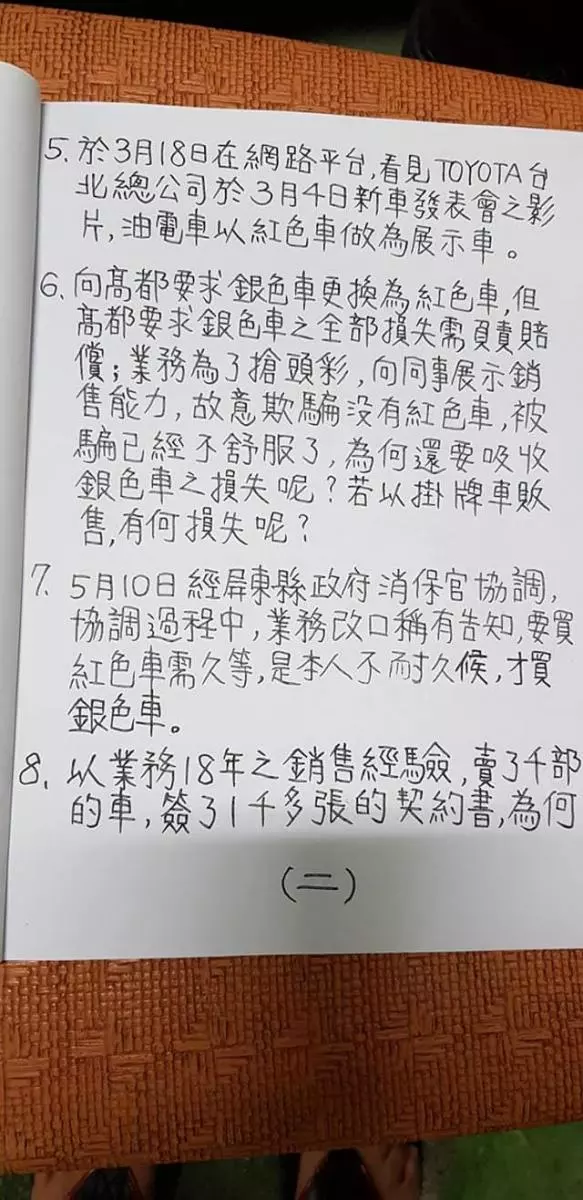 5. 於3月18日在網路平台,看見TOYOTA台
北總公司於3月4日新車發表會之影
片,油電車以紅色車做為展示車。
6. 向高都要求銀色車更換為紅色車,但
高都要求銀色車之全部損失需負責賠
償;業務為了搶頭彩,向同事展示銷
售能力,故意欺騙沒有紅色車,被
騙已經不舒服了,為何還要吸收
銀色車之損失呢?若以掛牌車販
售,有何損失呢?
7. 5月10日經屏東縣政府消保官協調,
協調過程中,業務改口稱有告知,要買
紅色車需久等,是本人不耐久候,才買
銀色車。
8. 以業務18年之銷售經驗,賣了千部
的車,簽了1千多張的契約書,為何
(二)